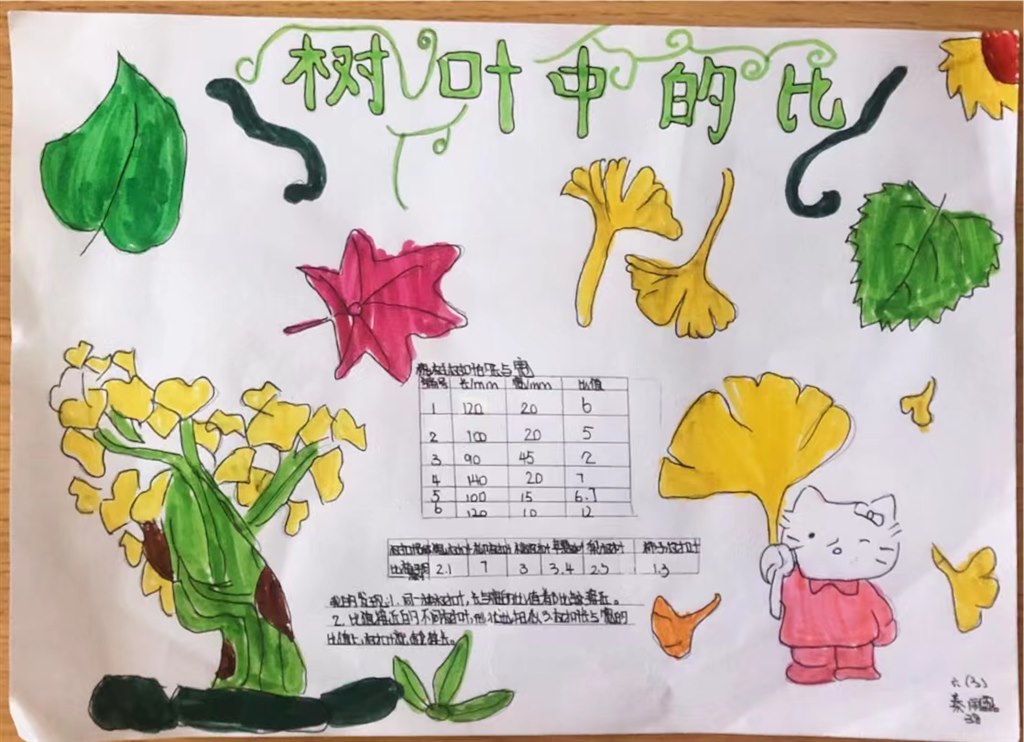 树叶中的比
编号 长/mm 宽/mm 比值
1 120 20 6
2 100 20 5
3 90 45 2
4 140 20 7
5 100 15 6.7
6 120 10 12
2.1 7 3 3.4 2.5 1.3
我的发现:1.同一种树叶,长与宽的比值都比较接近。
2.比值接近的不同树叶,形状也相似3.树叶长与宽的
比值
六(3)
秦
38